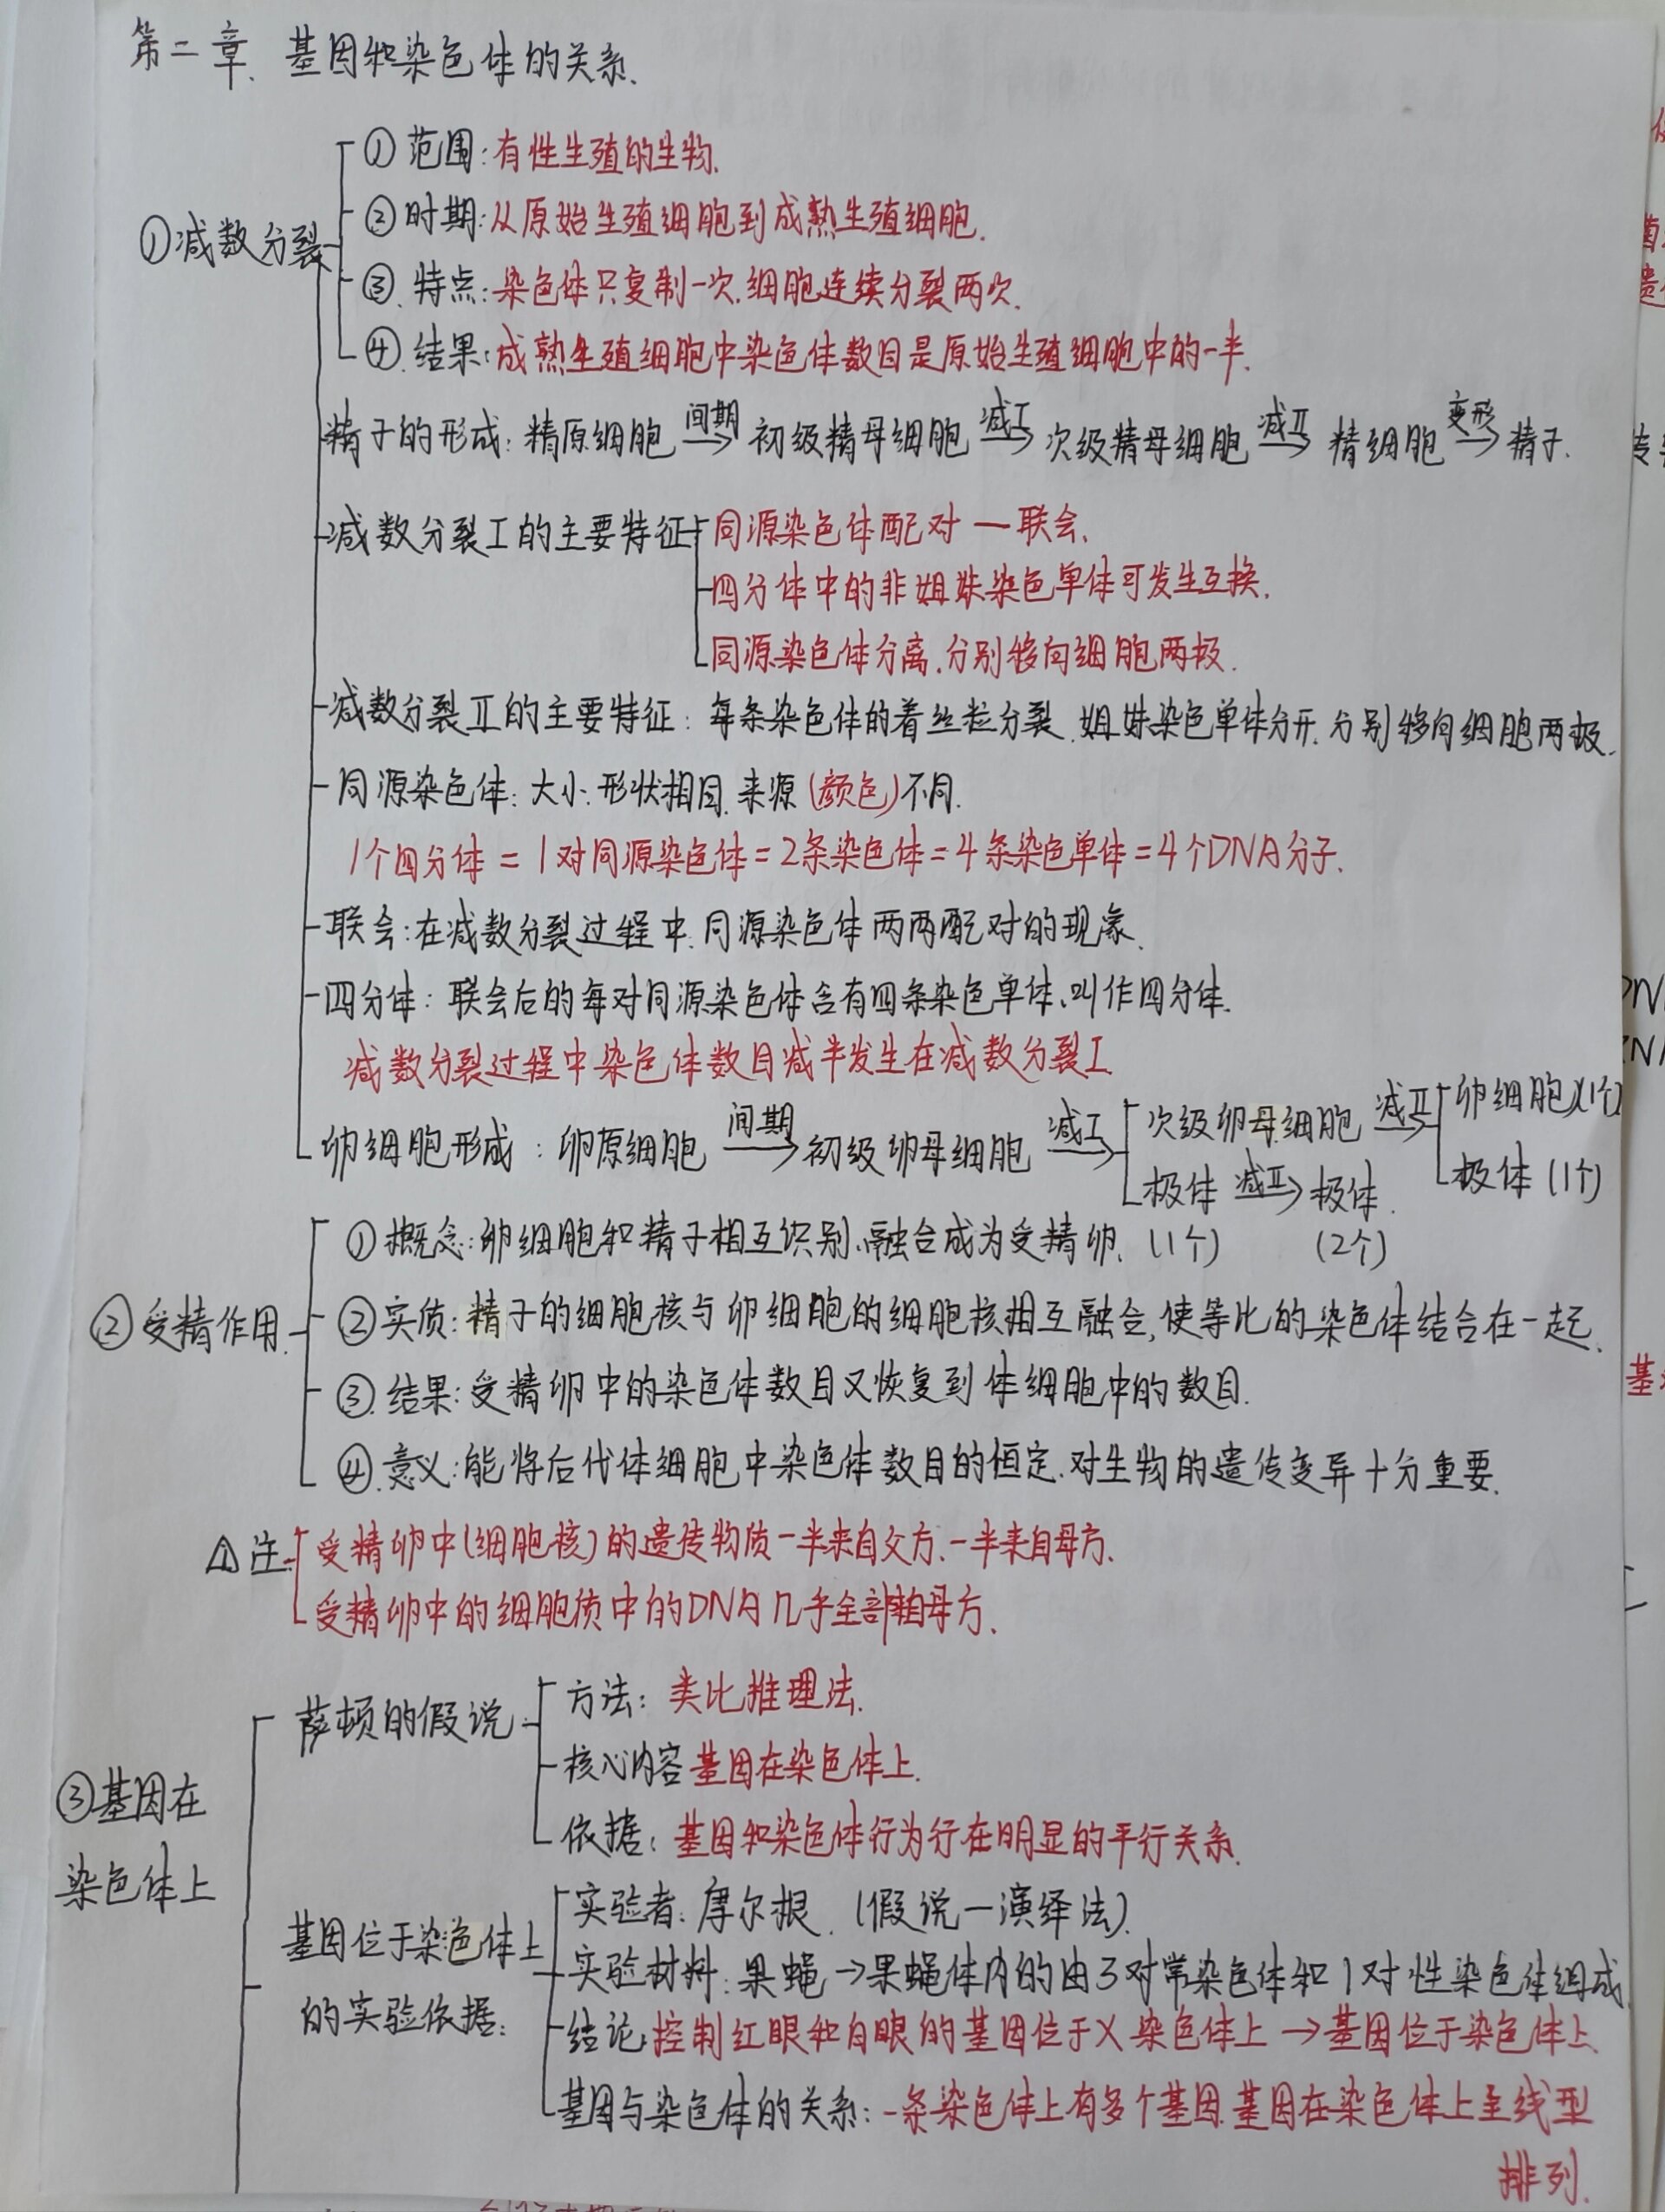 第二章. 基因和染色体的关系.
①减数分裂
①范围:有性生殖的生物.
②时期:从原始生殖细胞到成熟生殖细胞.
③.特点:染色体只复制一次.细胞连续分裂两次.
④.结果:成熟生殖细胞中染色体数目是原始生殖细胞中的一半.
精子的形成:精原细胞 间期→ 初级精母细胞 减Ⅰ→ 次级精母细胞 减Ⅱ→ 精细胞 变形→ 精子.
减数分裂Ⅰ的主要特征
同源染色体配对 — 联会.
四分体中的非姐妹染色单体可发生互换.
同源染色体分离.分别移向细胞两极.
减数分裂Ⅱ的主要特征:每条染色体的着丝粒分裂.姐妹染色单体分开.分别移向细胞两极.
同源染色体:大小.形状相同.来源(颜色)不同.
1个四分体=1对同源染色体=2条染色体=4条染色单体=4个DNA分子.
联会:在减数分裂过程中.同源染色体两两配对的现象.
四分体:联会后的每对同源染色体含有四条染色单体、叫作四分体.
减数分裂过程中染色体数目减半发生在减数分裂Ⅰ
卵细胞形成:卵原细胞 间期→ 初级卵母细胞 减Ⅰ→
次级卵母细胞 减Ⅱ→ 卵细胞(1个)
极体(1个)
极体 减Ⅱ→ 极体.
(1个) (2个)
②受精作用.
①概念:卵细胞和精子相互识别、融合成为受精卵.
②实质:精子的细胞核与卵细胞的细胞核相互融合,使等比的染色体结合在一起.
③.结果:受精卵中的染色体数目又恢复到体细胞中的数目.
④.意义:能将后代体细胞中染色体数目的恒定.对生物的遗传变异十分重要.
注
受精卵中(细胞核)的遗传物质一半来自父方、一半来自母方.
受精卵中的细胞质中的DNA几乎全部来自母方.
③基因在
染色体上
萨顿的假说
方法:类比推理法.
核心内容 基因在染色体上.
依据:基因和染色体行为行在明显的平行关系.
基因位于染色体上
的实验依据:
实验者:摩尔根.(假说—演绎法).
实验材料:果蝇→果蝇体内的由3对常染色体和1对性染色体组成.
结论:控制红眼和白眼的基因位于X染色体上→基因位于染色体上.
基因与染色体的关系:一条染色体上有多个基因.基因在染色体上呈线型
排列.